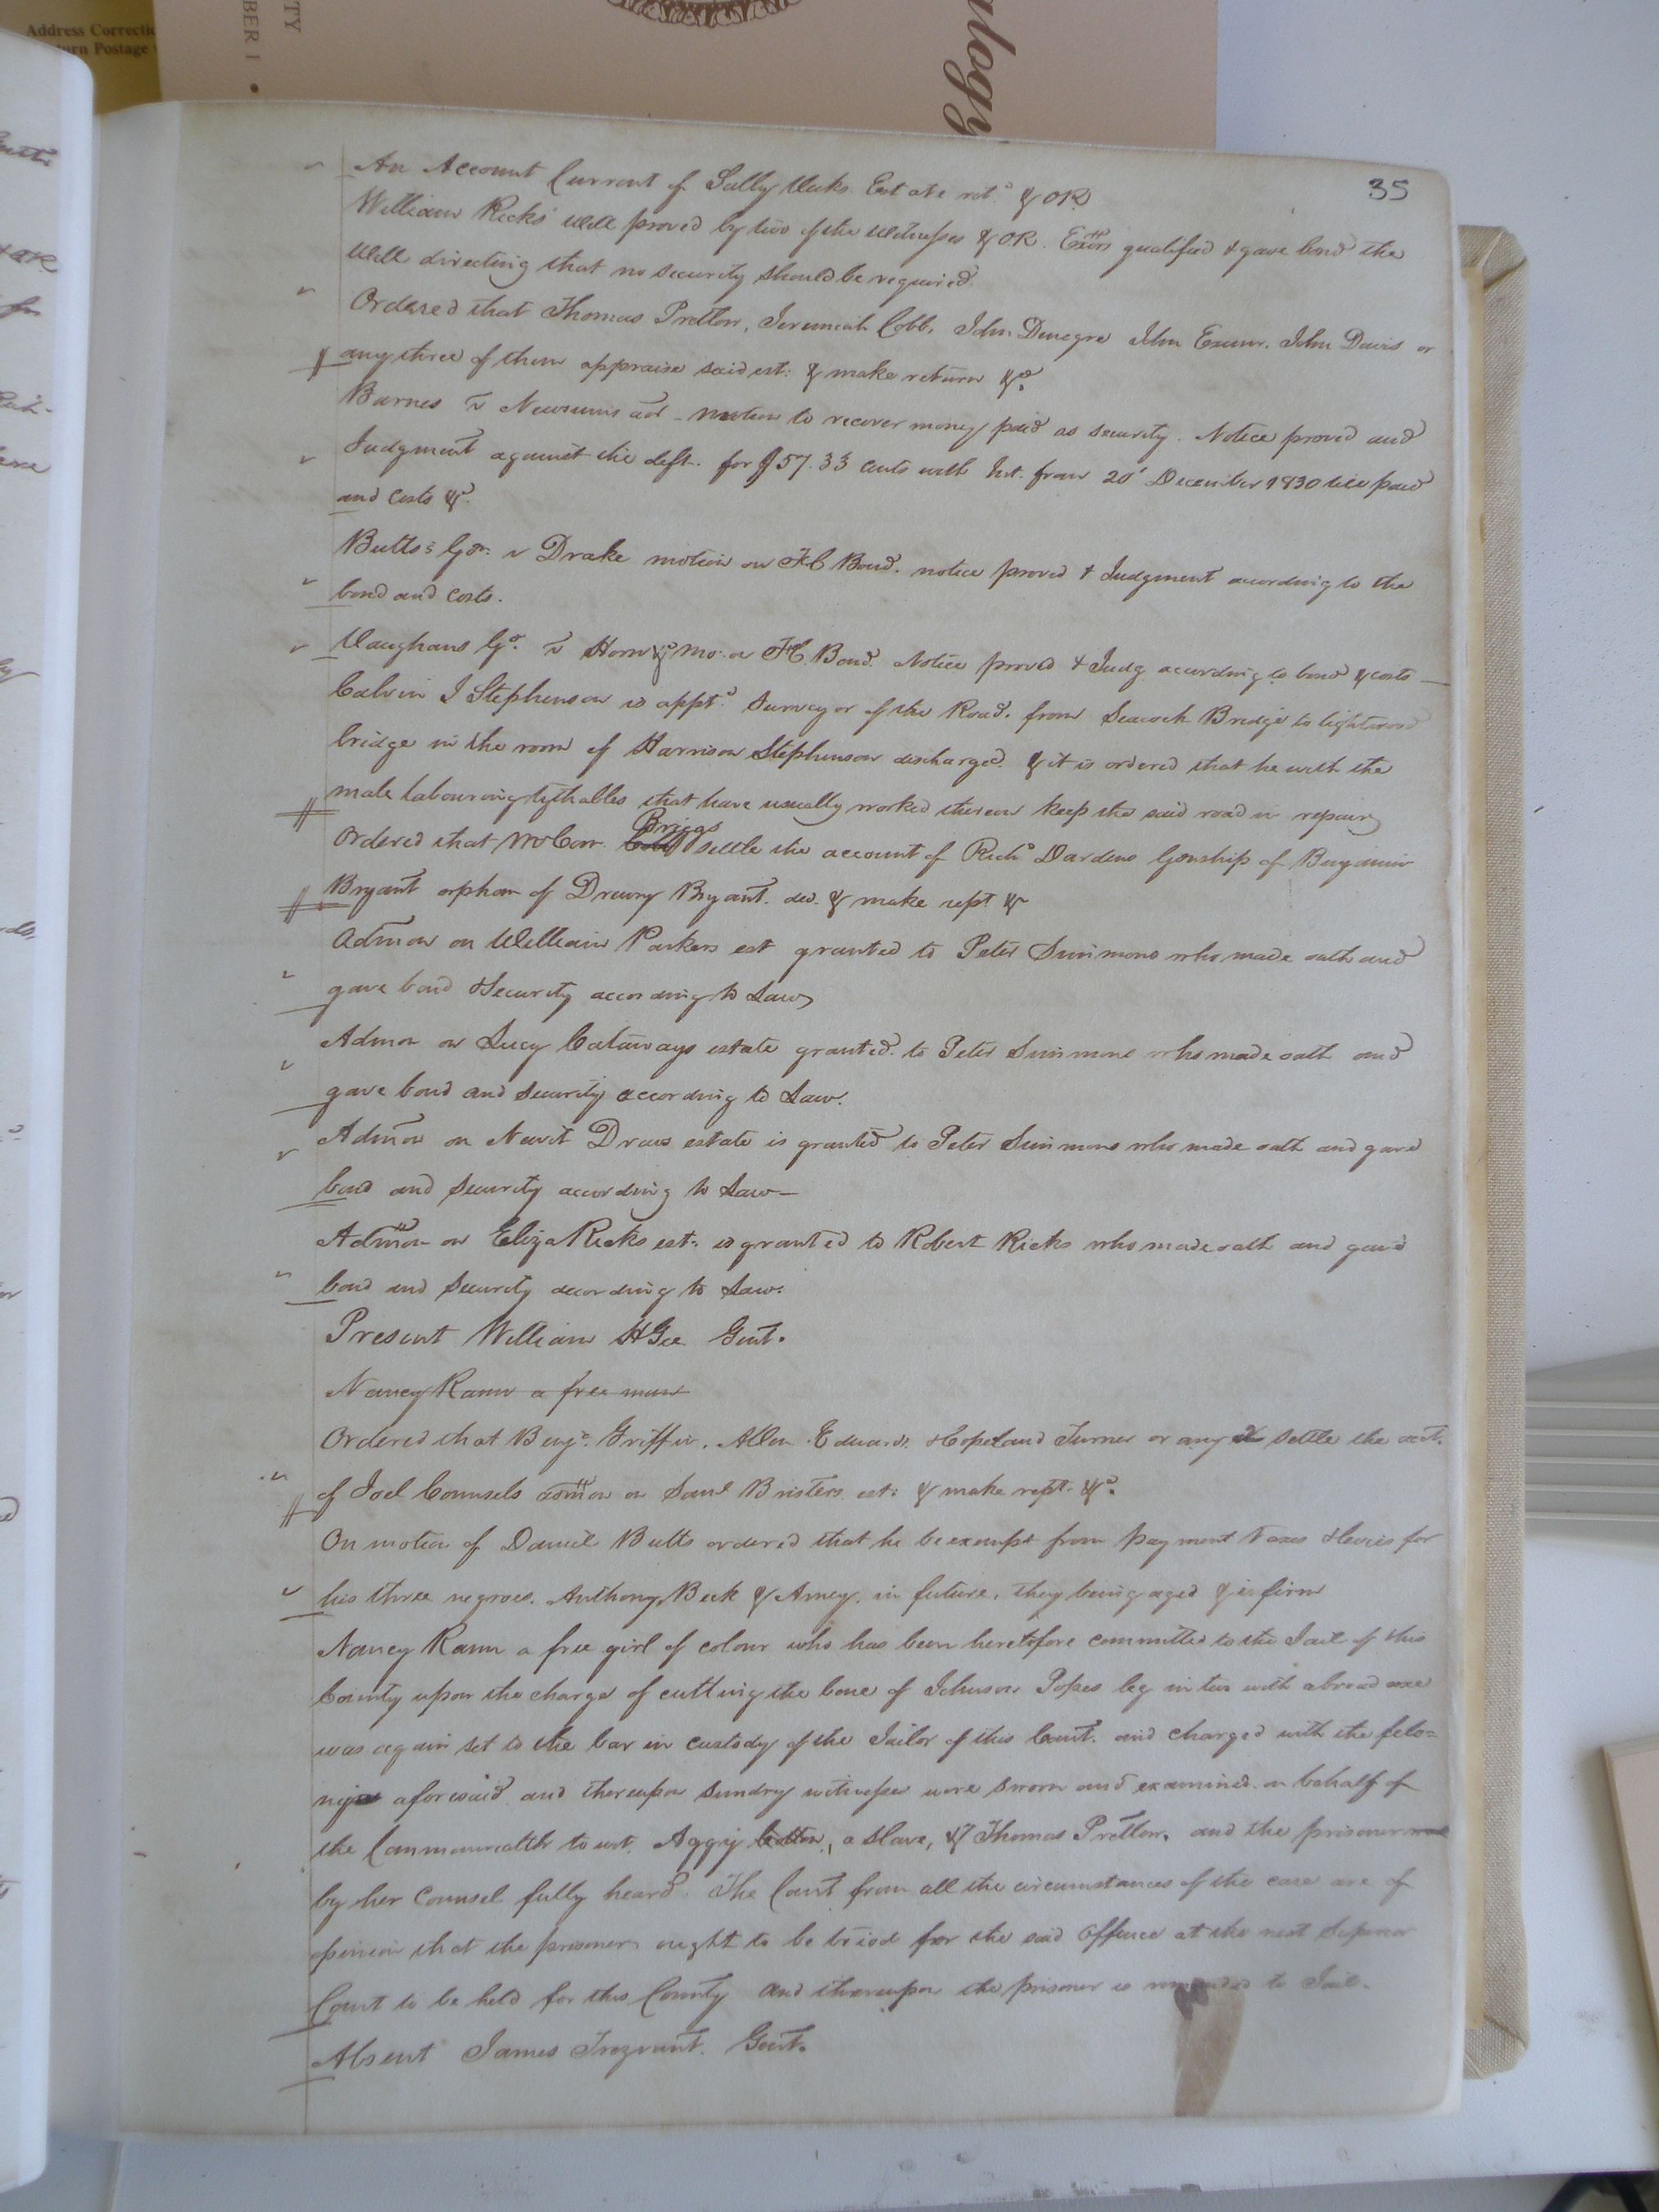 Address Correctio
urn Postage
TY
BER 1 •
alogy
35
An Account Current of Sally Weks Estate retd & OR
William Ricks' will proved by two of the witnesses & OR. Exors qualified & gave bond the
Will directing that no security should be required.
Ordered that Thomas Pretlow, Jeremiah Cobb, John Denegre John Exum, John Davis or
any three of them appraise said est: & make return &c
Barnes v Newsums ad - motion to recover money paid as security. Notice proved and
Judgment against the deft. for $57.33 cents with Int. from 20' December 1830 till paid
and Costs &c
Butts's Gdn v Drake motion on FC Bond. notice proved & Judgment according to the
bond and costs.
Vaughans Gd. v Horn &c mo: on FC. Bond. Notice proved & Judg according to bond & costs
Calvin J Stephenson is apptd Surveyor of the Road. from Seacock Bridge to lightwood
bridge in the room of Harrison Stephenson discharged. & it is ordered that he with the
male labouring tythables that have usually worked thereon keep the said road in repair
Briggs
Ordered that Mr Com. settle the account of Richd Dardens Gdnship of Benjamin
Bryant orphan of Drewry Bryant. dec. & make rept &c
Admon on William Parkers est granted to Peter Simmons who made oath and
gave bond & Security according to Law
Admon on Lucy Calaways estate granted to Peter Simmons who made oath and
gave bond and security according to Law.
Admon on Newit Drews estate is granted to Peter Simmons who made oath and gave
bond and security according to Law—
Admon on Eliza Ricks est. is granted to Robert Ricks who made oath and gave
bond and security according to Law.
Present William H Gee Gent.
Nancy Rann a free man
Ordered that Benjn. Griffin, Allen Edwards & Copeland Turner or any 2 settle the act.
of Joel Counsels admon on Saml Bristers est: & make rept. &c.
On motion of Daniel Butts ordered that he be exempt from payment Taxes & levies for
his three negroes. Anthony, Beck & Amey, in future, they being aged & infirm
Nancy Rann a free girl of colour who has been heretofore committed to the Jail of this
County upon the charge of cutting the bone of Johnson Popes leg in two with a broad axe
was again set to the bar in custody of the Jailor of this Court. and charged with the felo=
ny aforesaid and thereupon sundry witnesses were sworn and examined on behalf of
the Commonwealth to wit. Aggy, a slave, & Thomas Pretlow. and the prisoner
by her Counsel fully heard. The Court from all the circumstances of the case are of
opinion that the prisoner ought to be tried for the said offence at the next Superior
Court to be held for this County and thereupon the prisoner is remanded to Jail.
Absent James Trezvant. Gent.